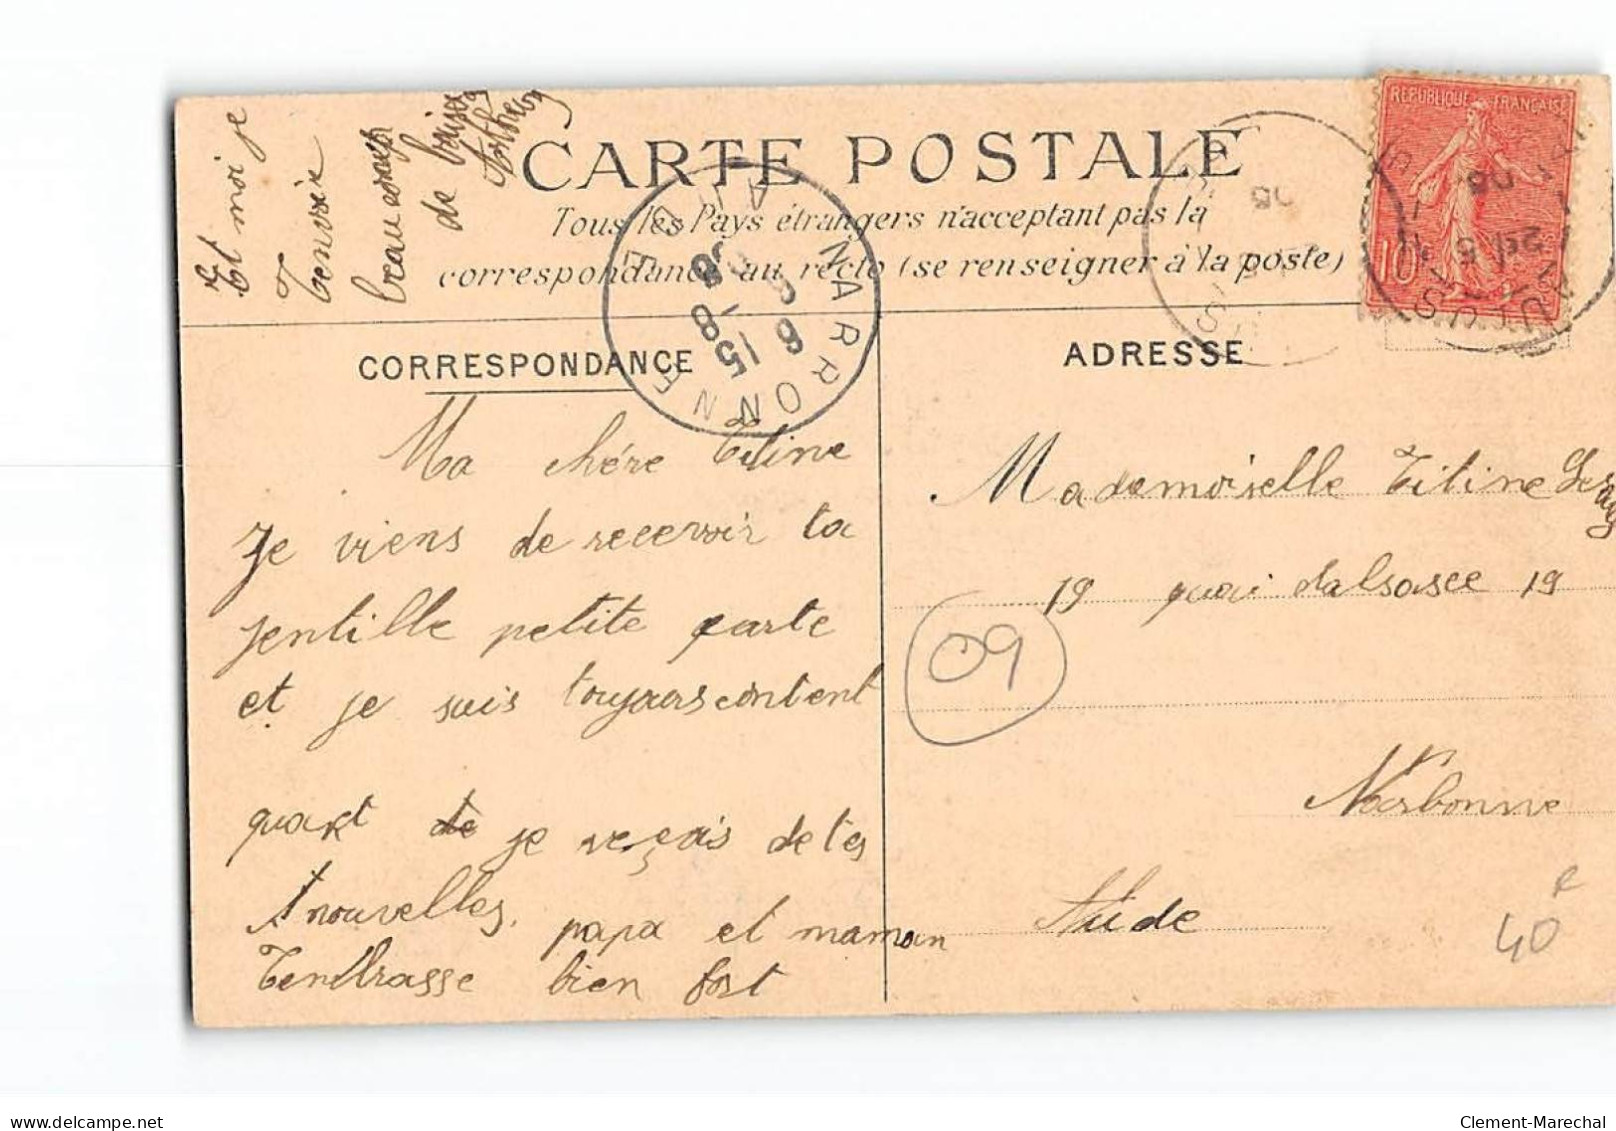 Et moi je
t'envoie
beaucoup
de baisers
CARTE POSTALE
Tous les Pays étrangers n'acceptant pas la
correspondance au recto (se renseigner à la poste)
REPUBLIQUE FRANÇAISE
10
NARBONNE
AUDE
15
CORRESPONDANCE
ADRESSE
Ma chère Titine
Je viens de recevoir ta
jentille petite carte
et je suis toujours content
quant je reçois de tes
nouvelles, papa et maman
t'embrasse bien fort
Mademoiselle Titine
19 quai d'alsasce 19
09
Narbonne
Aude
40
Clement-Marechal
delcampe.net